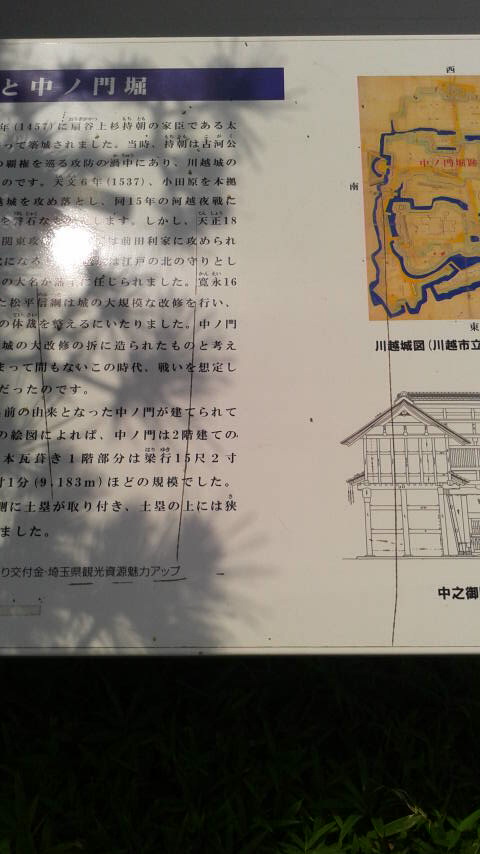 と中ノ門堀
年(1457)に扇谷上杉持朝の家臣である太
って築城されました。当時、持朝は古河公
の覇権を巡る攻防の渦中にあり、川越城の
のです。天文6年(1537)、小田原を本拠
越城を攻め落とし、同15年の河越夜戦た
を 石な します。しかし、天正18
関東攻 は前田利家に攻められ
になる は江戸の北の守りとし
の大名が藩主に任じられました。寛永16
た松平信綱は城の大規模な改修を行い、
の体裁を整えるにいたりました。中ノ門
城の大改修の折に造られたものと考え
まって間もないこの時代、戦いを想定し
だったのです。
前の由来となった中ノ門が建てられて
の絵図によれば、中ノ門は2階建ての
本瓦葺き1階部分は梁行15尺2寸
寸1分(9,183m)ほどの規模でした。
側に土塁が取り付き、土塁の上には狭
ました。
り交付金·埼玉県観光資源魅力アップ
西
中ノ門堀跡
南
東
川越城図(川越市立
中之御